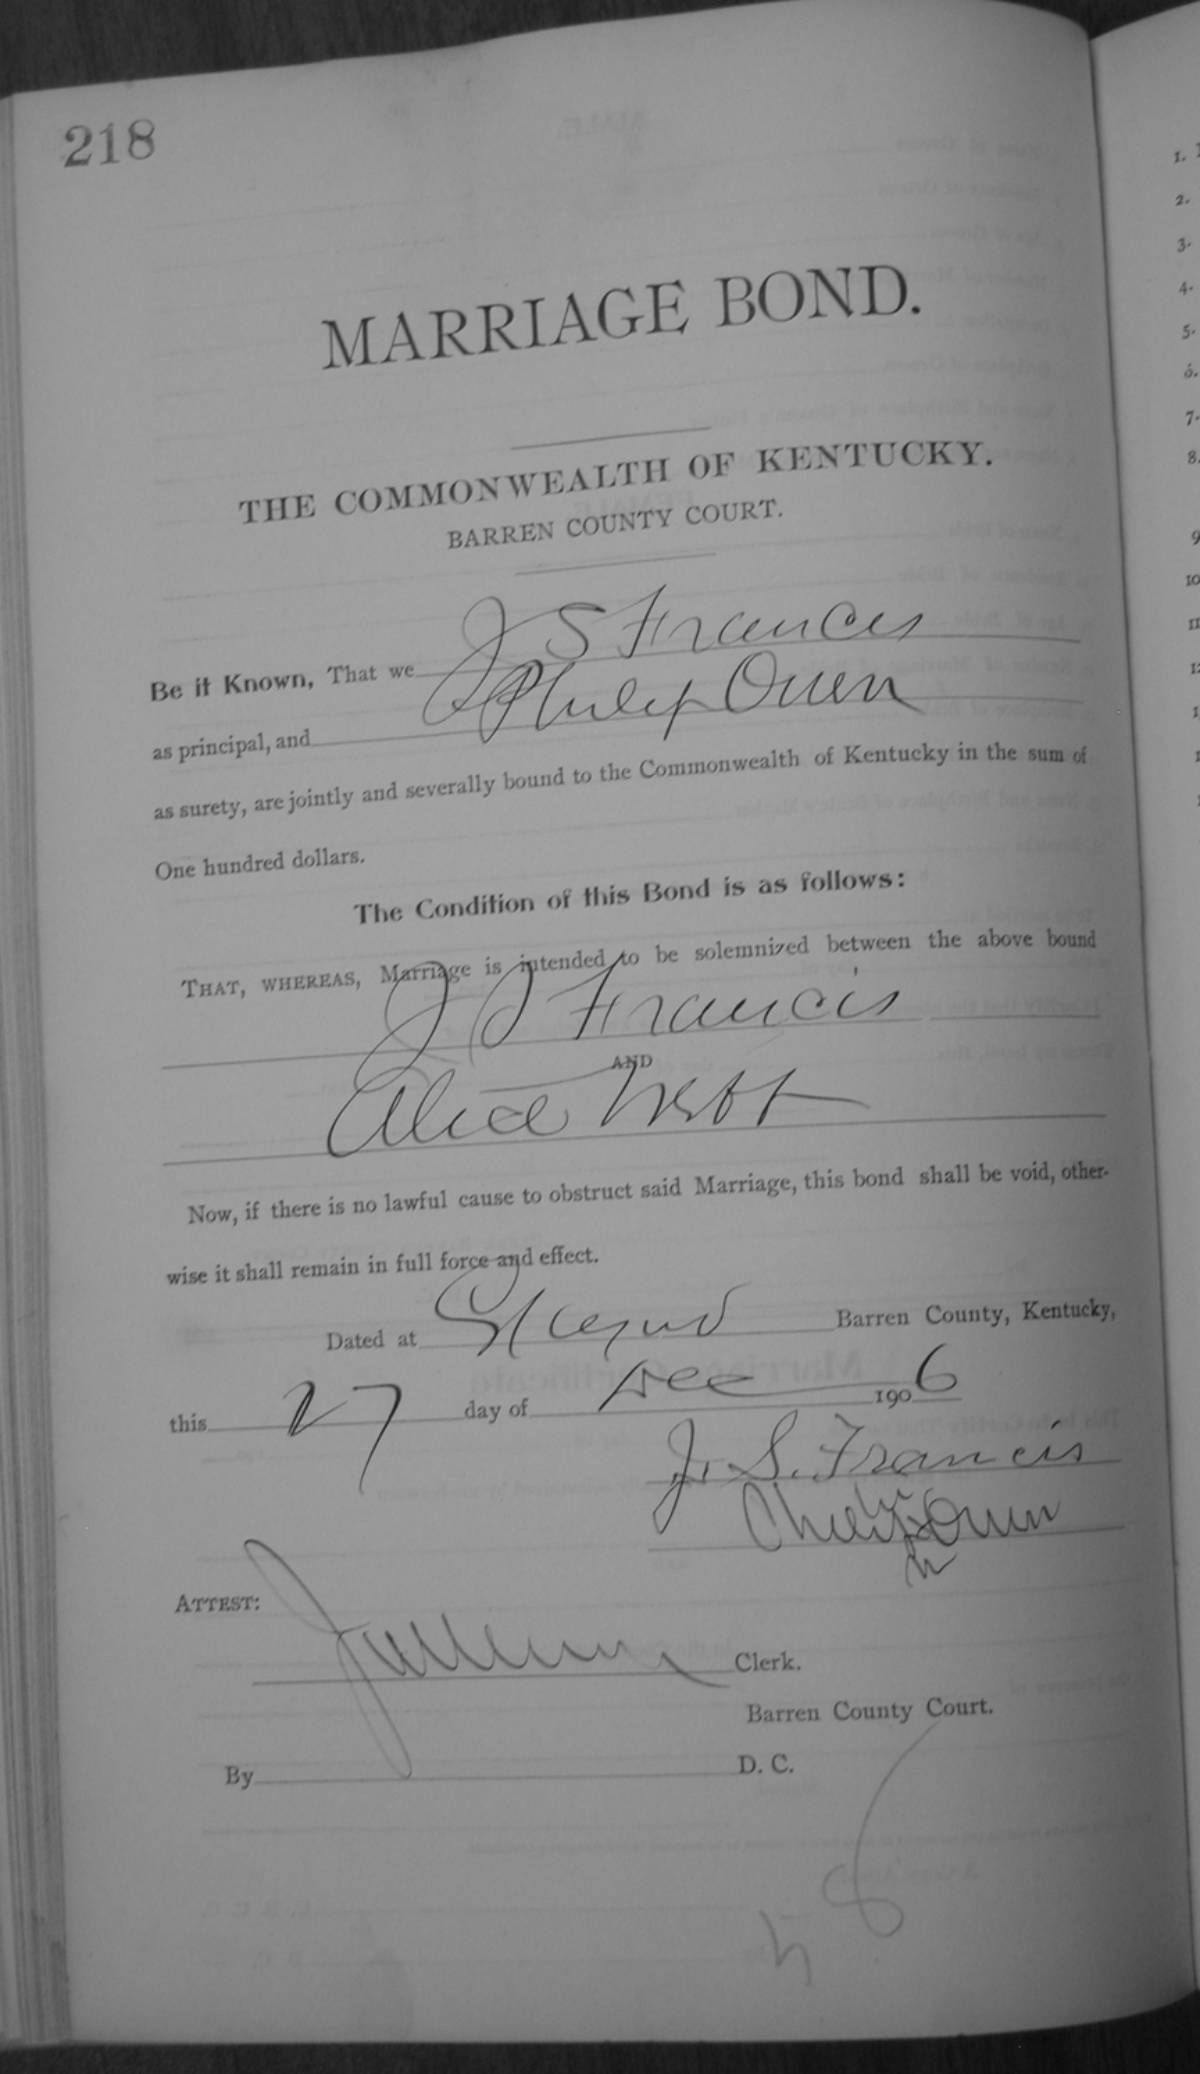 218
MARRIAGE BOND.
THE COMMONWEALTH OF KENTUCKY.
BARREN COUNTY COURT.
Be it Known, That we J S Francis
as principal, and Philip Owen
as surety, are jointly and severally bound to the Commonwealth of Kentucky in the sum of
One hundred dollars.
The Condition of this Bond is as follows:
THAT, WHEREAS, Marriage is intended to be solemnized between the above bound
J S Francis
AND
Alice Webb
Now, if there is no lawful cause to obstruct said Marriage, this bond shall be void, other-
wise it shall remain in full force and effect.
Dated at Barren County, Kentucky,
this 27 day of Dec 1906
J. S. Francis
Philip Owen
ATTEST:
Clerk.
Barren County Court.
By D. C.
1.
2.
3.
4.
5.
6.
7.
8.
9
10
11